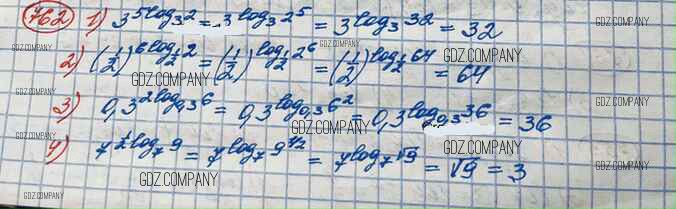 762 1) 3^{5log_3 2} = 3^{log_3 2^5} = 3^{log_3 32} = 32
2) (1/2)^{6log_{1/2} 2} = (1/2)^{log_{1/2} 2^6} = (1/2)^{log_{1/2} 64} = 64
3) 0,3^{2log_{0,3} 6} = 0,3^{log_{0,3} 6^2} = 0,3^{log_{0,3} 36} = 36
4) 7^{1/2 log_7 9} = 7^{log_7 9^{1/2}} = 7^{log_7 √9} = √9 = 3
GDZ.COMPANY
GDZ.COMPANY
GDZ.COMPANY
GDZ.COMPANY
GDZ.COMPANY
GDZ.COMPANY
GDZ.COMPANY
GDZ.COMPANY
GDZ.COMPANY
GDZ.COMPANY
GDZ.COMPANY
GDZ.COMPANY